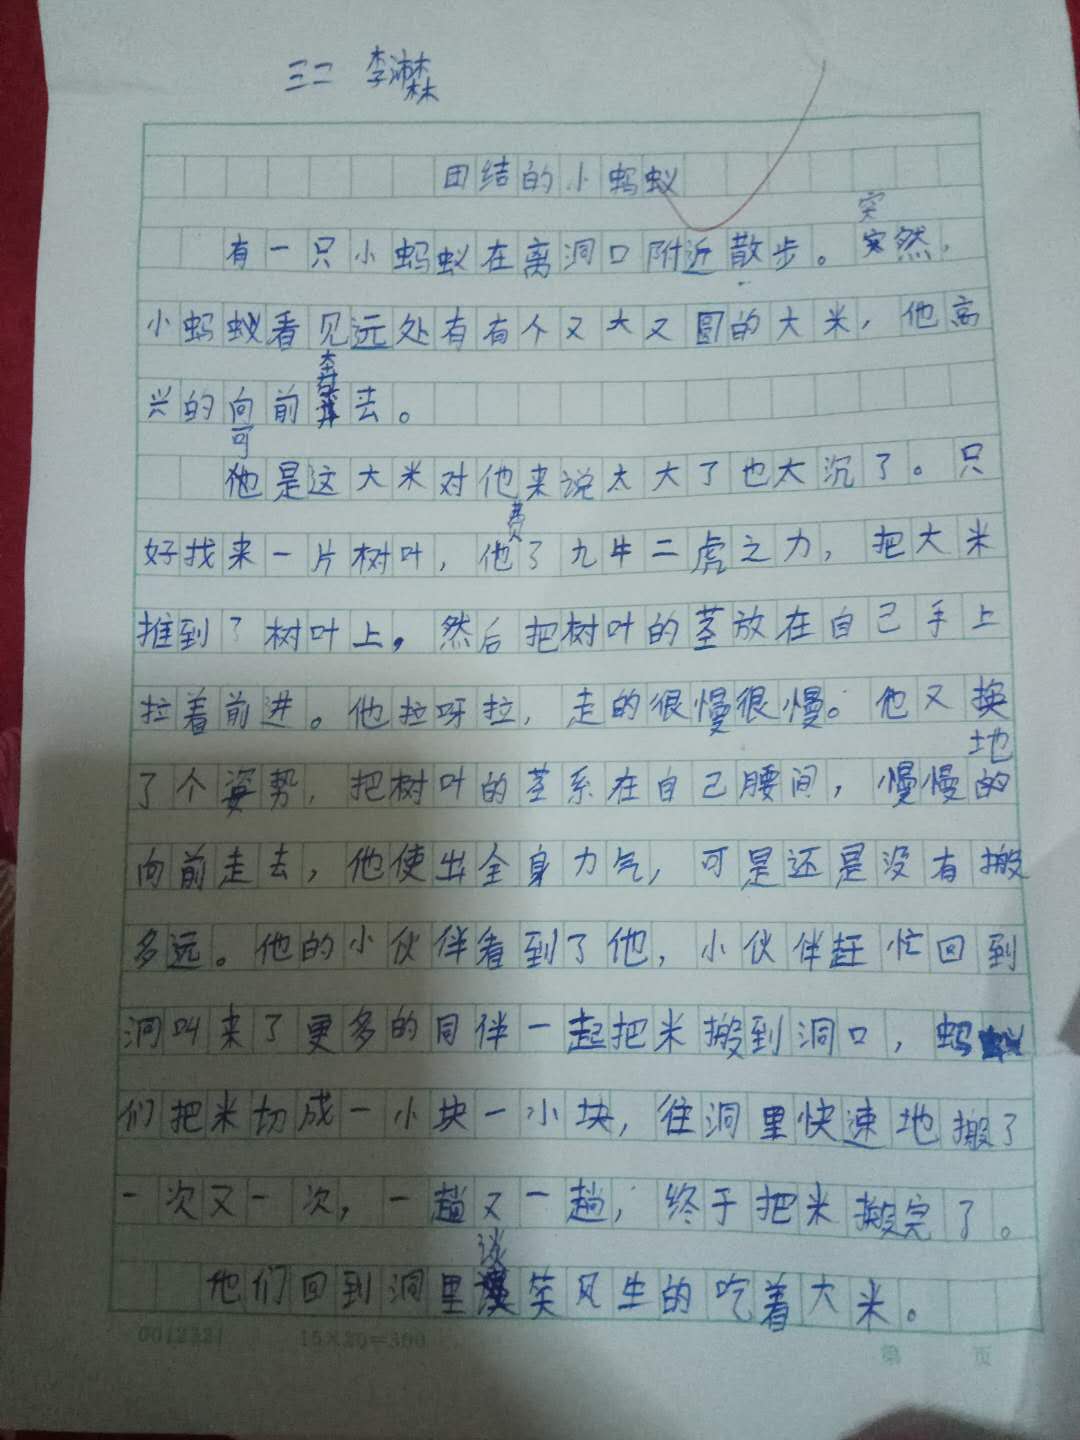 三二 李沛霖
团结的小蚂蚁
突
有一只小蚂蚁在离洞口附近散步。突然，
小蚂蚁看见远处有有个又大又圆的大米，他高
兴的向前奔去。
可
他是这大米对他来说太大了也太沉了。只
费
好找来一片树叶，他了九牛二虎之力，把大米
推到了树叶上，然后把树叶的茎放在自己手上
拉着前进。他拉呀拉，走的很慢很慢。他又换
地
了个姿势，把树叶的茎系在自己腰间，慢慢的
向前走去，他使出全身力气，可是还是没有搬
多远。他的小伙伴看到了他，小伙伴赶忙回到
洞叫来了更多的同伴一起把米搬到洞口，蚂蚁
们把米切成一小块一小块，往洞里快速地搬了
一次又一次，一趟又一趟，终于把米搬完了。
谈
他们回到洞里笑风生的吃着大米。
15×20=300
第 页